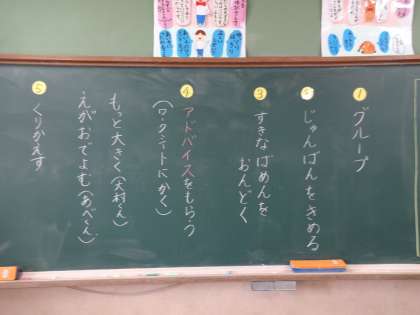 ① グループ
じゅんばんをきめる
③ すきなばめんを
おんどく
④ アドバイスをもらう
(ワークシートにかく)
もっと大きく(大村くん)
・えがおでよむ(あべくん)
⑤ くりかえす